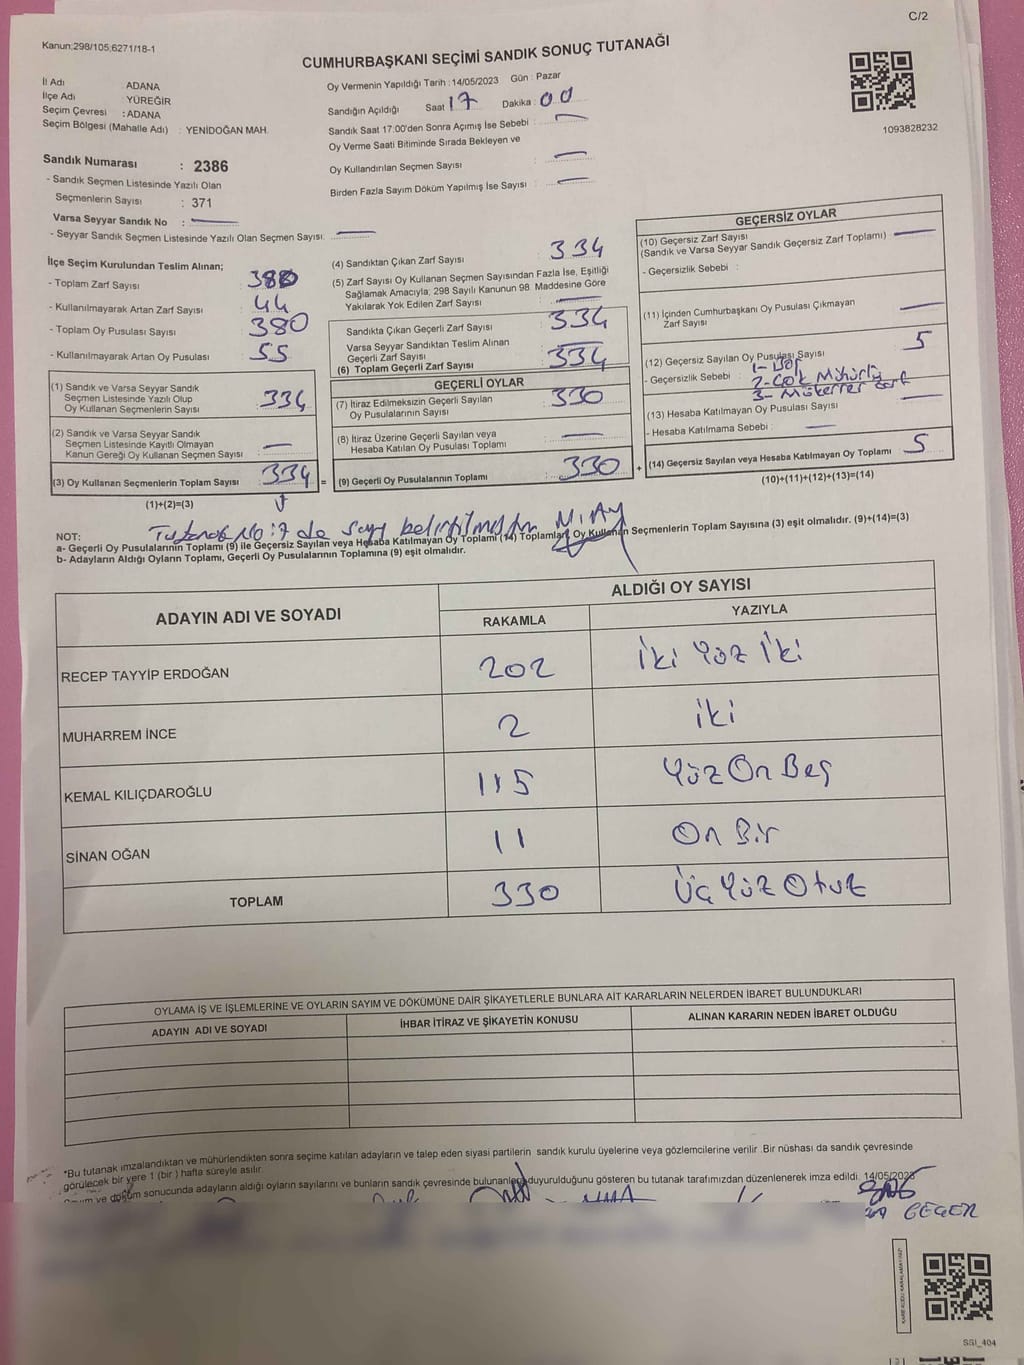 C/2
Kanun:298/105;6271/18-1
CUMHURBAŞKANI SEÇİMİ SANDIK SONUÇ TUTANAĞI
İl Adı : ADANA
İlçe Adı : YÜREĞİR
Seçim Çevresi : ADANA
Seçim Bölgesi (Mahalle Adı) : YENİDOĞAN MAH.
Oy Vermenin Yapıldığı Tarih : 14/05/2023 Gün : Pazar
Sandığın Açıldığı Saat 17 Dakika : 00
Sandık Saat 17:00'den Sonra Açımış İse Sebebi : —
Oy Verme Saati Bitiminde Sırada Bekleyen ve
Oy Kullandırılan Seçmen Sayısı : —
Birden Fazla Sayım Döküm Yapılmış İse Sayısı : —
1093828232
Sandık Numarası : 2386
- Sandık Seçmen Listesinde Yazılı Olan
Seçmenlerin Sayısı : 371
Varsa Seyyar Sandık No : —
- Seyyar Sandık Seçmen Listesinde Yazılı Olan Seçmen Sayısı: —
İlçe Seçim Kurulundan Teslim Alınan;
- Toplam Zarf Sayısı 380
- Kullanılmayarak Artan Zarf Sayısı 44
- Toplam Oy Pusulası Sayısı 380
- Kullanılmayarak Artan Oy Pusulası 55
(1) Sandık ve Varsa Seyyar Sandık
Seçmen Listesinde Yazılı Olup
Oy Kullanan Seçmenlerin Sayısı 334
(2) Sandık ve Varsa Seyyar Sandık
Seçmen Listesinde Kayıtlı Olmayan
Kanun Gereği Oy Kullanan Seçmen Sayısı —
(3) Oy Kullanan Seçmenlerin Toplam Sayısı 334 =
(1)+(2)=(3)
(4) Sandıktan Çıkan Zarf Sayısı 334
(5) Zarf Sayısı Oy Kullanan Seçmen Sayısından Fazla İse, Eşitliği
Sağlamak Amacıyla; 298 Sayılı Kanunun 98. Maddesine Göre
Yakılarak Yok Edilen Zarf Sayısı —
Sandıkta Çıkan Geçerli Zarf Sayısı 334
Varsa Seyyar Sandıktan Teslim Alınan
Geçerli Zarf Sayısı —
(6) Toplam Geçerli Zarf Sayısı 334
GEÇERLİ OYLAR
(7) İtiraz Edilmeksizin Geçerli Sayılan
Oy Pusulalarının Sayısı 330
(8) İtiraz Üzerine Geçerli Sayılan veya
Hesaba Katılan Oy Pusulası Toplamı —
(9) Geçerli Oy Pusulalarının Toplamı 330 +
GEÇERSİZ OYLAR
(10) Geçersiz Zarf Sayısı
(Sandık ve Varsa Seyyar Sandık Geçersiz Zarf Toplamı) —
- Geçersizlik Sebebi :
(11) İçinden Cumhurbaşkanı Oy Pusulası Çıkmayan
Zarf Sayısı —
(12) Geçersiz Sayılan Oy Pusulası Sayısı 5
- Geçersizlik Sebebi : 1- Boş
2- Çok Mühürlü
3- Mükerrer zarf
(13) Hesaba Katılmayan Oy Pusulası Sayısı —
- Hesaba Katılmama Sebebi : —
(14) Geçersiz Sayılan veya Hesaba Katılmayan Oy Toplamı 5
(10)+(11)+(12)+(13)=(14)
Tutanak No:7 de sayı belirtilmiştir
NOT:
a- Geçerli Oy Pusulalarının Toplamı (9) ile Geçersiz Sayılan veya Hesaba Katılmayan Oy Toplamı (14) Toplamları, Oy Kullanan Seçmenlerin Toplam Sayısına (3) eşit olmalıdır. (9)+(14)=(3)
b- Adayların Aldığı Oyların Toplamı, Geçerli Oy Pusulalarının Toplamına (9) eşit olmalıdır.
ADAYIN ADI VE SOYADI ALDIĞI OY SAYISI
RAKAMLA YAZIYLA
RECEP TAYYİP ERDOĞAN 202 İki Yüz İki
MUHARREM İNCE 2 iki
KEMAL KILIÇDAROĞLU 115 Yüz On Beş
SİNAN OĞAN 11 On Bir
TOPLAM 330 Üç Yüz Otuz
OYLAMA İŞ VE İŞLEMLERİNE VE OYLARIN SAYIM VE DÖKÜMÜNE DAİR ŞİKAYETLERLE BUNLARA AİT KARARLARIN NELERDEN İBARET BULUNDUKLARI
ADAYIN ADI VE SOYADI İHBAR İTİRAZ VE ŞİKAYETİN KONUSU ALINAN KARARIN NEDEN İBARET OLDUĞU
*Bu tutanak imzalandıktan ve mühürlendikten sonra seçime katılan adayların ve talep eden siyasi partilerin sandık kurulu üyelerine veya gözlemcilerine verilir .Bir nüshası da sandık çevresinde
görülecek bir yere 1 (bir ) hafta süreyle asılır.
ve döküm sonucunda adayların aldığı oyların sayılarını ve bunların sandık çevresinde bulunanlara duyurulduğunu gösteren bu tutanak tarafımızdan düzenlenerek imza edildi. 14/05/2023
GEÇER
SSI_404